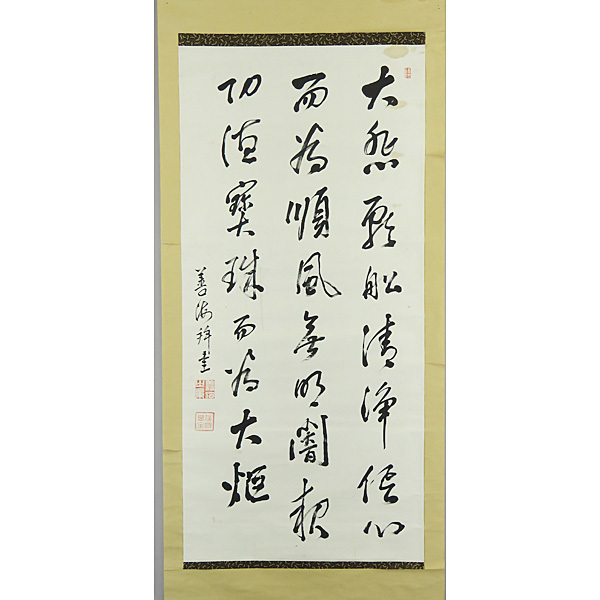 大悲願船清浄信心
而為順風無明闇夜
功徳寳珠而為大炬
善海